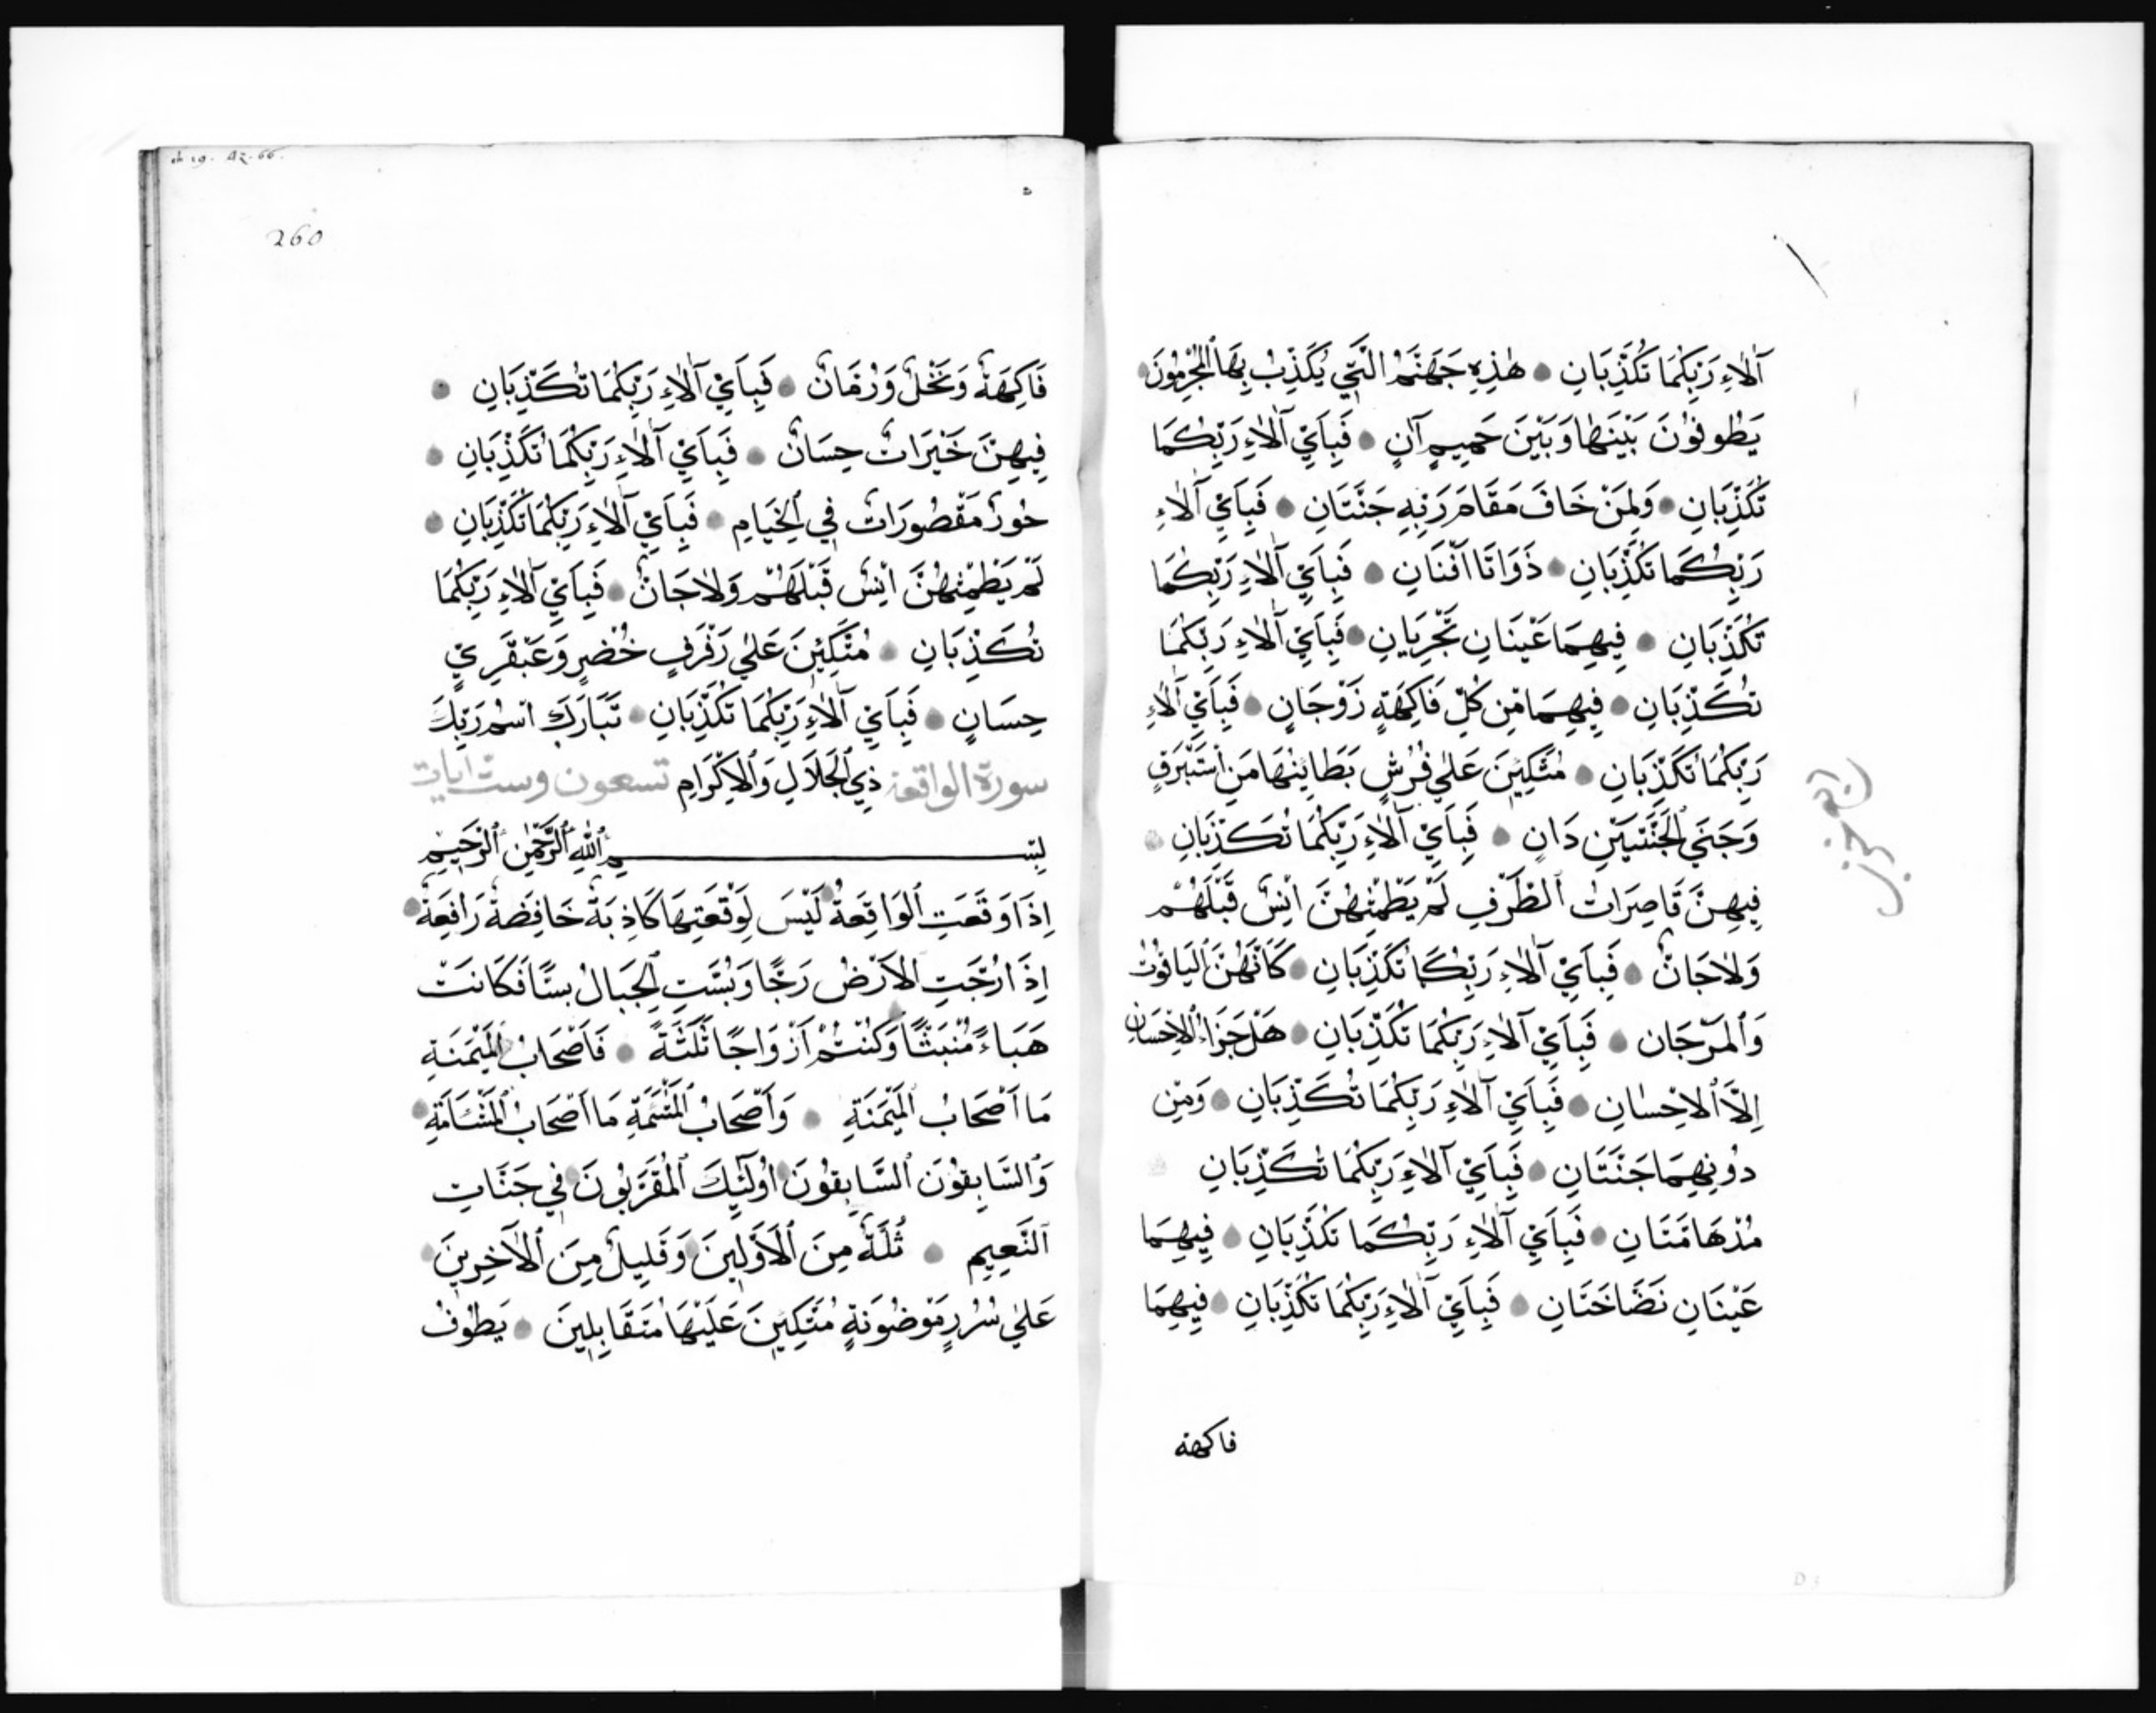 آلَاءِ رَبِّكُمَا تُكَذِّبَانِ هٰذِهِ جَهَنَّمُ الَّتِي يُكَذِّبُ بِهَا ٱلْمُجْرِمُونَ
يَطُوفُونَ بَيْنَهَا وَبَيْنَ حَمِيمٍ آنٍ فَبِاَيِّ آلَاءِ رَبِّكُمَا
تُكَذِّبَانِ وَلِمَنْ خَافَ مَقَامَ رَبِّهِ جَنَّتَانِ فَبِاَيِّ آلَاءِ
رَبِّكُمَا تُكَذِّبَانِ ذَوَاتَا اَفْنَانٍ فَبِاَيِّ آلَاءِ رَبِّكُمَا
تُكَذِّبَانِ فِيهِمَا عَيْنَانِ تَجْرِيَانِ فَبِاَيِّ آلَاءِ رَبِّكُمَا
تُكَذِّبَانِ فِيهِمَا مِن كُلِّ فَاكِهَةٍ زَوْجَانِ فَبِاَيِّ آلَاءِ
رَبِّكُمَا تُكَذِّبَانِ مُتَّكِئِينَ عَلٰي فُرُشٍ بَطَائِنُهَا مِنْ اسْتَبْرَقٍ
وَجَنَي ٱلْجَنَّتَيْنِ دَانٍ فَبِاَيِّ آلَاءِ رَبِّكُمَا تُكَذِّبَانِ
ربع حزب
فِيهِنَّ قَاصِرَاتُ ٱلطَّرْفِ لَمْ يَطْمِثْهُنَّ اِنْسٌ قَبْلَهُمْ
وَلَا جَانٌّ فَبِاَيِّ آلَاءِ رَبِّكُمَا تُكَذِّبَانِ كَاَنَّهُنَّ ٱلْيَاقُوتُ
وَٱلْمَرْجَان فَبِاَيِّ آلَاءِ رَبِّكُمَا تُكَذِّبَانِ هَلْ جَزَاءُ ٱلْاِحْسَانِ
اِلَّا ٱلْاِحْسَانِ فَبِاَيِّ آلَاءِ رَبِّكُمَا تُكَذِّبَانِ وَمِنْ
دُونِهِمَا جَنَّتَانِ فَبِاَيِّ آلَاءِ رَبِّكُمَا تُكَذِّبَانِ
مُدْهَامَّتَانِ فَبِاَيِّ آلَاءِ رَبِّكُمَا تُكَذِّبَانِ فِيهِمَا
عَيْنَانِ نَضَّاخَتَانِ فَبِاَيِّ آلَاءِ رَبِّكُمَا تُكَذِّبَانِ فِيهِمَا
فاكهة
260
فَاكِهَةٌ وَنَخْلٌ وَرُمَّانٌ فَبِاَيِّ آلَاءِ رَبِّكُمَا تُكَذِّبَانِ
فِيهِنَّ خَيْرَاتٌ حِسَانٌ فَبِاَيِّ آلَاءِ رَبِّكُمَا تُكَذِّبَانِ
حُورٌ مَقْصُورَاتٌ فِي ٱلْخِيَامِ فَبِاَيِّ آلَاءِ رَبِّكُمَا تُكَذِّبَانِ
لَمْ يَطْمِثْهُنَّ اِنْسٌ قَبْلَهُمْ وَلَا جَانٌّ فَبِاَيِّ آلَاءِ رَبِّكُمَا
تُكَذِّبَانِ مُتَّكِئِينَ عَلٰي رَفْرَفٍ خُضْرٍ وَعَبْقَرِيٍّ
حِسَانٍ فَبِاَيِّ آلَاءِ رَبِّكُمَا تُكَذِّبَانِ تَبَارَكَ اسْمُ رَبِّكَ
سورة الواقعة ذِي ٱلْجَلَالِ وَٱلْاِكْرَامِ تسعون وست ايات
بِسْمِ ٱللّٰهِ ٱلرَّحْمٰنِ ٱلرَّحِيمِ
اِذَا وَقَعَتِ ٱلْوَاقِعَةُ لَيْسَ لِوَقْعَتِهَا كَاذِبَةٌ خَافِضَةٌ رَافِعَةٌ
اِذَا رُجَّتِ ٱلْاَرْضُ رَجًّا وَبُسَّتِ ٱلْجِبَالُ بَسًّا فَكَانَتْ
هَبَاءً مُنْبَثًّا وَكُنْتُمْ اَزْوَاجًا ثَلٰثَةً فَاَصْحَابُ ٱلْمَيْمَنَةِ
مَا اَصْحَابُ ٱلْمَيْمَنَةِ وَاَصْحَابُ ٱلْمَشْئَمَةِ مَا اَصْحَابُ ٱلْمَشْئَامَةِ
وَٱلسَّابِقُونَ ٱلسَّابِقُونَ اُولٰئِكَ ٱلْمُقَرَّبُونَ فِي جَنَّاتِ
ٱلنَّعِيمِ ثُلَّةٌ مِنَ ٱلْاَوَّلِينَ وَقَلِيلٌ مِنَ ٱلْآخِرِينَ
عَلٰي سُرُرٍ مَوْضُونَةٍ مُتَّكِئِينَ عَلَيْهَا مُتَقَابِلِينَ يَطُوفُ